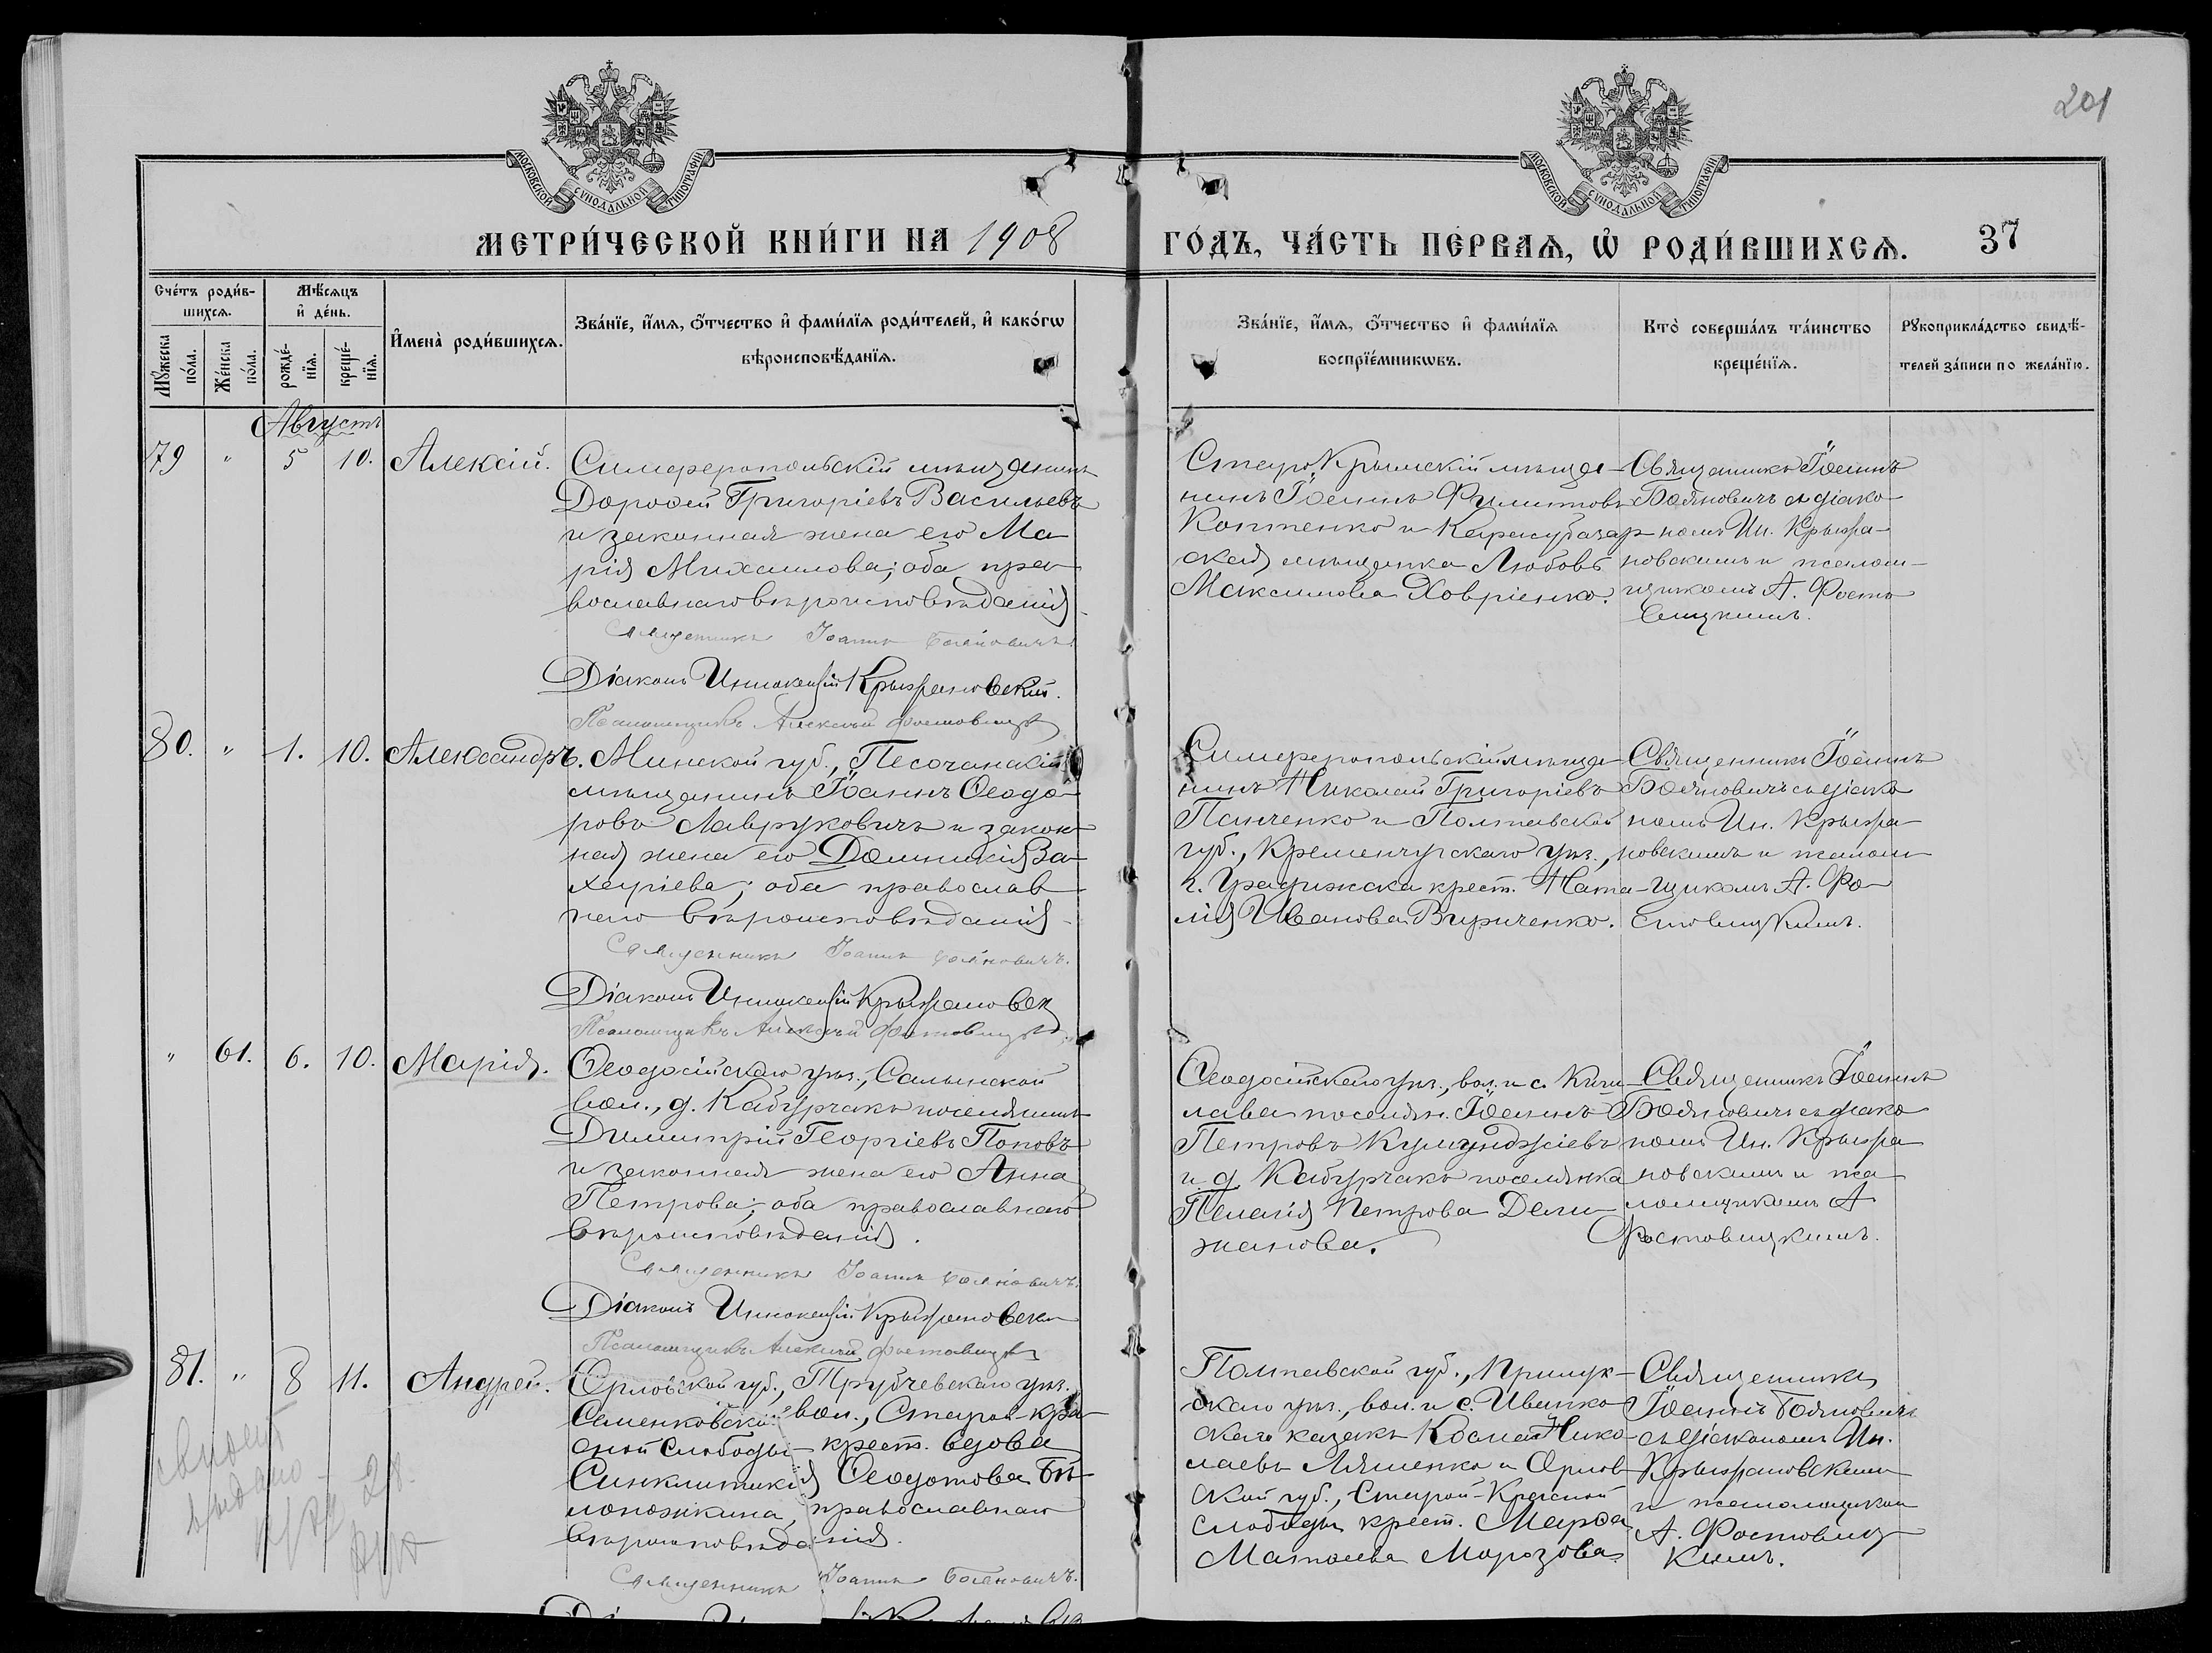 МОСКОВСКОЙ СѴНОДАЛЬНОЙ ТИПОГРАФІИ
МОСКОВСКОЙ СѴНОДАЛЬНОЙ ТИПОГРАФІИ
201
МЕТРИ́ЧЕСКОЙ КНИ́ГИ НА 1908
ГО́ДЪ, ЧА́СТЬ ПЕ́РВАѦ, Ѡ҆ РОДИ́ВШИХСѦ. 37
Сче́тъ роди́в-
шихсѧ.
Мꙋ́жеска по́ла.
Же́нска по́ла.
Мѣ́сѧцъ
и҆ де́нь.
рожде́-
нїѧ.
креще́-
нїѧ.
И҆мена̀ роди́вшихсѧ.
Зва́нїе, и҆́мѧ, ѻ҆́тчество и҆ фами́лїѧ роди́телей, и҆ како́гѡ
вѣроисповѣ́данїѧ.
Зва́нїе, и҆́мѧ, ѻ҆́тчество и҆ фами́лїѧ
воспрїе́мникѡвъ.
Кто̀ соверша́лъ та́инство
креще́нїѧ.
Рꙋкоприкла́дство свидѣ́-
телей за́писи по жела́нїю.
Августъ
79 " 5 10. Алексій.
Симферопольскій мѣщанинъ
Дороѳей Григоріевъ Васильевъ
и законная жена его Ма-
рія Михаилова; оба пра-
вославнаго вѣроисповѣданія
Священникъ Іоаннъ Бояновичъ
Діаконъ Иннокентій Крыжановскій.
Псаломщикъ Алексѣй
Старо-Крымскій мѣща-
нинъ Іоаннъ Филипповъ
Коптенко и Карасубазар-
ская мѣщанка Любовь
Максимова Ховріенко.
Священникъ Іоаннъ
Бояновичъ съ діако-
номъ Ин. Крыжа-
новскимъ и псалом-
щикомъ А. Фосто-
вицкимъ.
80. " 1. 10. Александръ.
Минской губ., Песочанскій
мѣщанинъ Іоаннъ Ѳеодо-
ровъ Лавруковичъ и закон-
ная жена его Домникія За-
харіева; оба православ-
наго вѣроисповѣданія
Священникъ Іоаннъ Бояновичъ.
Діаконъ Иннокентій Крыжановск
Псаломщикъ Алексѣй
Симферопольскій мѣща-
нинъ Николай Григоріевъ
Панченко и Полтавской
губ., Кременчугскаго уѣз.,
г. Градижска крест. Ната-
лія Иванова Вириченко.
Священникъ Іоаннъ
Бояновичъ съ діако-
номъ Ин. Крыжа-
новскимъ и псалом-
щикомъ А. Фо-
стовицкимъ.
" 61. 6. 10. Марія.
Ѳеодосійскаго уѣз., Салынской
вол., д. Кабурчакъ поселянинъ
Димитрій Георгіевъ Поповъ
и законная жена его Анна
Петрова; оба православнаго
вѣроисповѣданія.
Священникъ Іоаннъ Бояновичъ.
Діаконъ Иннокентій Крыжановски
Псаломщикъ Алексѣй
Ѳеодосійскаго уѣз., вол. и с. Киш-
лава поселян. Іоаннъ
Петровъ Куюмджіевъ
и д. Кабурчакъ поселянка
Пелагія Петрова Дели-
жанова.
Священникъ Іоаннъ
Бояновичъ съ діако-
номъ Ин. Крыжа-
новскимъ и пса-
ломщикомъ А.
Фостовицкимъ.
81. " 8 11. Андрей.
Орловской губ., Трубчевскаго уѣз.
Семенковской вол., Старой-Кра-
сной Слободы крест. вдова
Синклитикія Ѳеодотова Бѣ-
лоножкина, православнаго
вѣроисповѣданія.
Священникъ Іоаннъ Бояновичъ.
выдано
28.
Полтавской губ., Прилук-
скаго уѣз., вол. и с. Иванков-
скаго казакъ Косма Нико-
лаевъ Ляшенко и Орлов-
ской губ., Старой-Красной
слободы крест. Марѳа
Матѳеева Морозова
Священникъ
Іоаннъ Бояновичъ
съ діакономъ Ин.
Крыжановскимъ
и псаломщикомъ
А. Фостовиц-
кимъ.